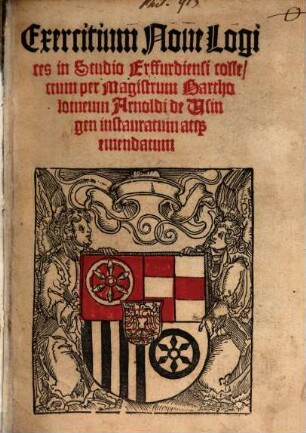 Phil. 913
Exercitium Noue Logi
ces in Studio Erffurdiensi colle/
ctum per Magistrum Bartho
lomeum Arnoldi de Usin
gen instauratum atqꝫ
emendatum